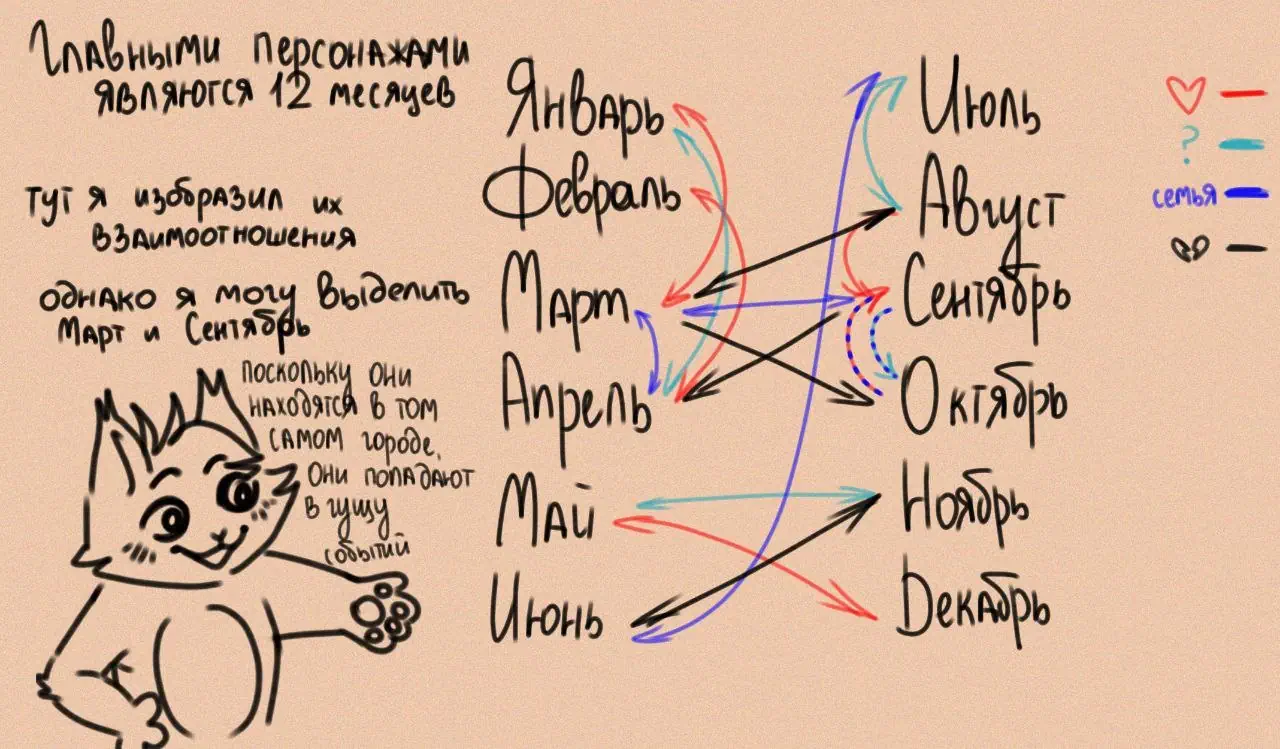 Главными персонажами
являются 12 месяцев
тут я изобразил их
взаимоотношения
однако я могу выделить
Март и Сентябрь
поскольку они
находятся в том
самом городе,
они попадают
в гущу
событий
Январь
Февраль
Март
Апрель
Май
Июнь
Июль
Август
Сентябрь
Октябрь
Ноябрь
Декабрь
?
семья